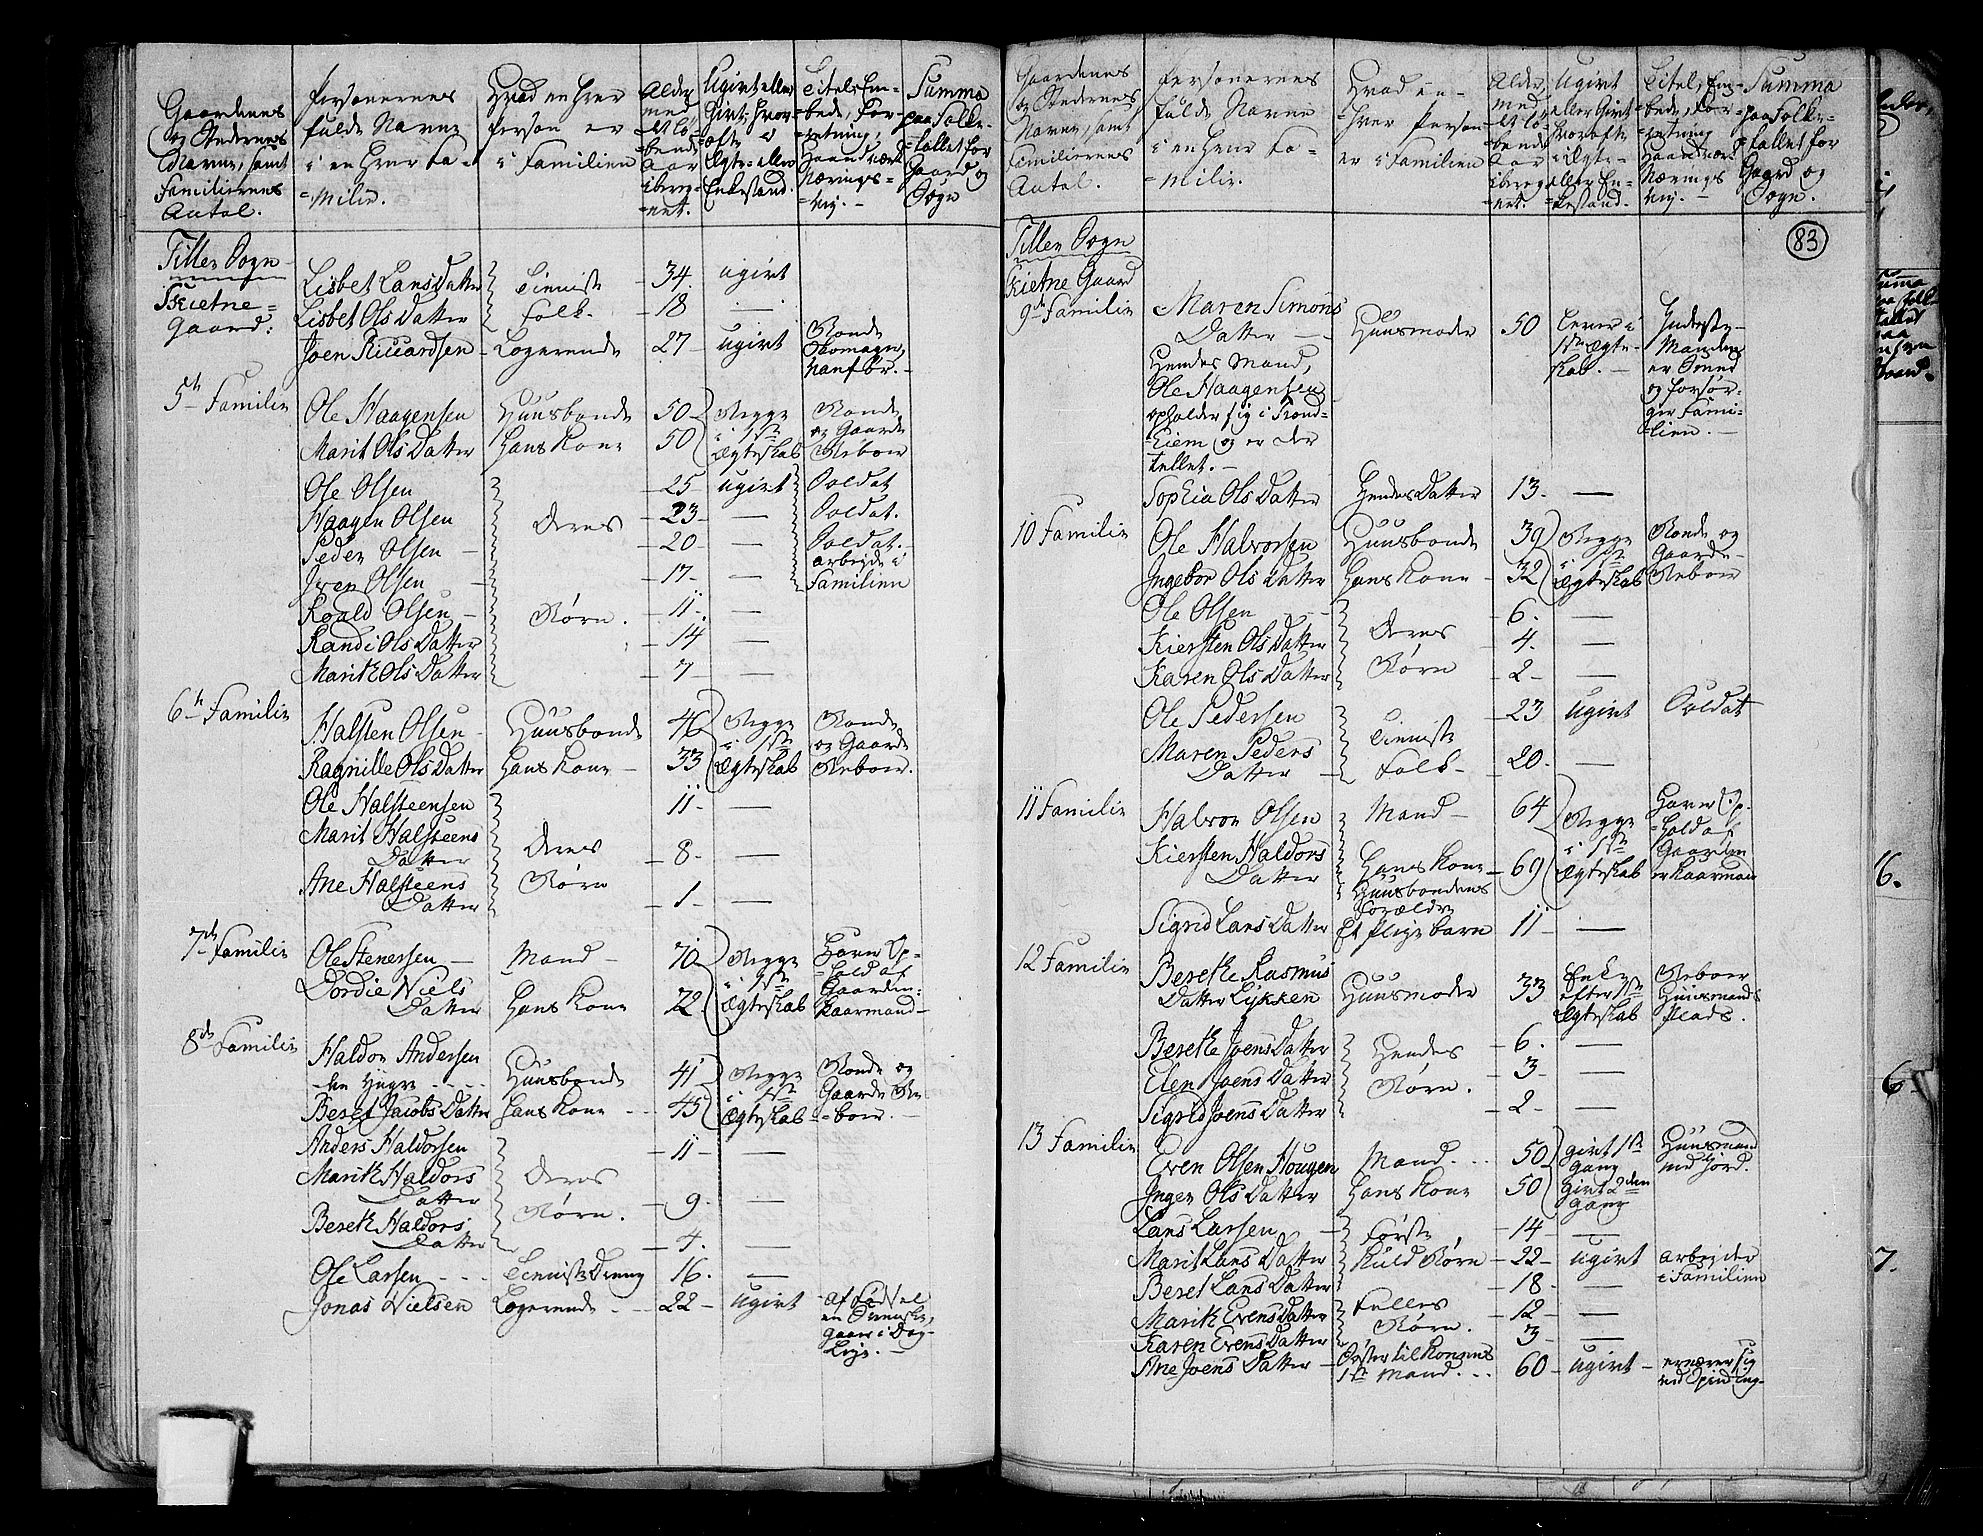 Gaardenes
og Stedernes
Navne, samt
Familiernes
Antal.
Personernes
fulde Navne
i en hver Fa-
=milie.
Hvad en hver
Person er
i Familien
Alder
med
et lö-
bende
Aar
ibereg-
net.
Ugivt eller
Givt, hvor-
ofte i
Egte- eller
Enkestand.
Titel, Em-
bede, For-
retning,
Haandverk
Nærings-
vej.-
Summa
paa Folke-
tallet for
Gaard og
Sogn
Tiller Sogn
Kietne-
Gaard:
Lisbet LarsDatter
Tieniste
34.
ugivt
Lisbet OlsDatter
Folk.
18
—
Joen Riccardsen
Logerende
27
ugivt
Bonde
5te Familie
Ole Haagensen
Huusbonde
50
Begge
Bonde
Marit OlsDatter
hans Kone
50
i 1ste
Ægteskab
og Gaard
Beboer
Ole Olsen
25
ugivt
Soldat
Haagen Olsen
Deres
23
—
Soldat.
Peder Olsen
20
—
Soldat.
Iver Olsen
17
—
arbejde i
Familien
Roald Olsen
Børn.
11.
—
Randi OlsDatter
14
—
Marit OlsDatter
7
—
6te Familie
Halsten Olsen
Huusbonde
46
Begge
Bonde
Ragnille OlsDatter
hans Kone
33
i 1ste
Ægteskab
og Gaard
Beboer.
Ole Halsteensen
11
—
Marit Halsteens
Datter
Deres
8
—
Ane Halsteens
Datter
Børn
1
7de Familie
Ole Stenersen
Mand
70
Begge
i 1ste
Ægteskab
haver Op-
hold af
Gaarden.
Kaarmand
Dordie Niels
Datter
hans Kone
72
8de Familie
Haldor Andersen
den yngre
Huusbonde
41
Begge
i 1ste
Ægteskab
Bonde og
Gaard Be
boer.
Beret Jacobs Datter
hans Kone
45
Anders Haldorsen
11
—
Marit Haldors
Datter
Deres
9.
—
Beret Haldors
Datter
Børn.
4.
—
Ole Larsen
TienisteDreng
16.
—
Jonas Nielsen
Logerende
22
ugivt
af Fødsel
en Svenske,
gaar i Dag-
Leje.
Gaardenes
og Stedernes
Navne, samt
Familiernes
Antal.
Personernes
fulde Navne
i en hver Fa-
=milie.
Hvad en-
hver Person
er i Familien
Alder,
med
et lö-
bende
Aar
ibereg-
net.
Ugivt
eller Givt
hvorofte
i Egte-
eller En-
kestand.
Titel, Em-
bede, For-
retning
Haandverk
Nærings
vej.
Summa
paa Folke-
tallet for
Gaard og
Sogn.
83
Tiller Sogn
Kietne Gaard
9de Familie
Maren Simons
Datter
Huusmoder
50
Lever i
1ste Ægte-
skab.
Hendes Mand,
Ole Haagensen
opholder sig i Trond-
hiem og er der
tellet.
Manden
er Smed
og forsør-
ger Fami-
lien.
Sophia OlsDatter
Hendes Datter
13.
—
10 Familie
Ole Halvorsen
Huusbonde
39
Begge
i 1ste
Ægteskab
Bonde og
Gaard-
Beboer
Ingebor Ols Datter
Hans Kone
32
Ole Olsen
6.
—
Kiersten OlsDatter
Deres
4.
—
Karen OlsDatter
Børn
2
—
Ole Pedersen
Tieniste
23
ugivt
Soldat
Maren Peders
Datter
Folk
20.
—
11 Familie
Halvor Olsen
Mand
64
Begge
i 1ste
Ægteskab
haver Op-
hold af
Gaarden
er Kaarmand
Kiersten Haldors
Datter
Hans Kone
Huusbondens
Forældre
69
Sigrid LarsDatter
Et plejebarn
11
—
12 Familie
Berethe Rasmus
Datter Lykken
Huusmoder
33
Enke
efter 1ste
Ægteskab
Beboer
Huusmands
plads.
Berethe JoensDatter
Hendes
6.
—
Elen Joens Datter
Børn.
3
—
Sigrid Joens Datter
2
—
13 Familie
Even Olsen Hougen
Mand.
50
givt 1ste
Gang
Huusmand
med Jord.
Inger OlsDatter
hans Kone
50
givt 2den
Gang
Lars Larsen
Første
14
—
Marit Lars Datter
Kuld Børn
22
ugivt
arbejder
i Familien
Beret Lars Datter
18
—
Marit EvensDatter
Felles
12
—
Karen EvensDatter
Børn.
3
—
Ane Joens Datter
Søster til Konens
1ste Mand.
60
ugivt
ernærer sig
ved Spinding
6.
6
7.